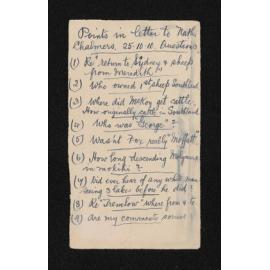 Points in letter to Nath.
Chalmers. 25.10.10. Questions
(1) Re "return to Sydney & sheep
from Meredith"
(2) Who owned 1st sheep Southland
(3) where did McKoy get cattle.
How originally cattle in Southland
(4) Who was "George"?
(5) Wasn't Fox really "Moffatt"
(6) How long descending Molyneux
in mokihi?
(7) Did ever hear of any white man
seeing 3 lakes before he did?
(8) Re "Trenelow" where from & to
(9) Are my comments